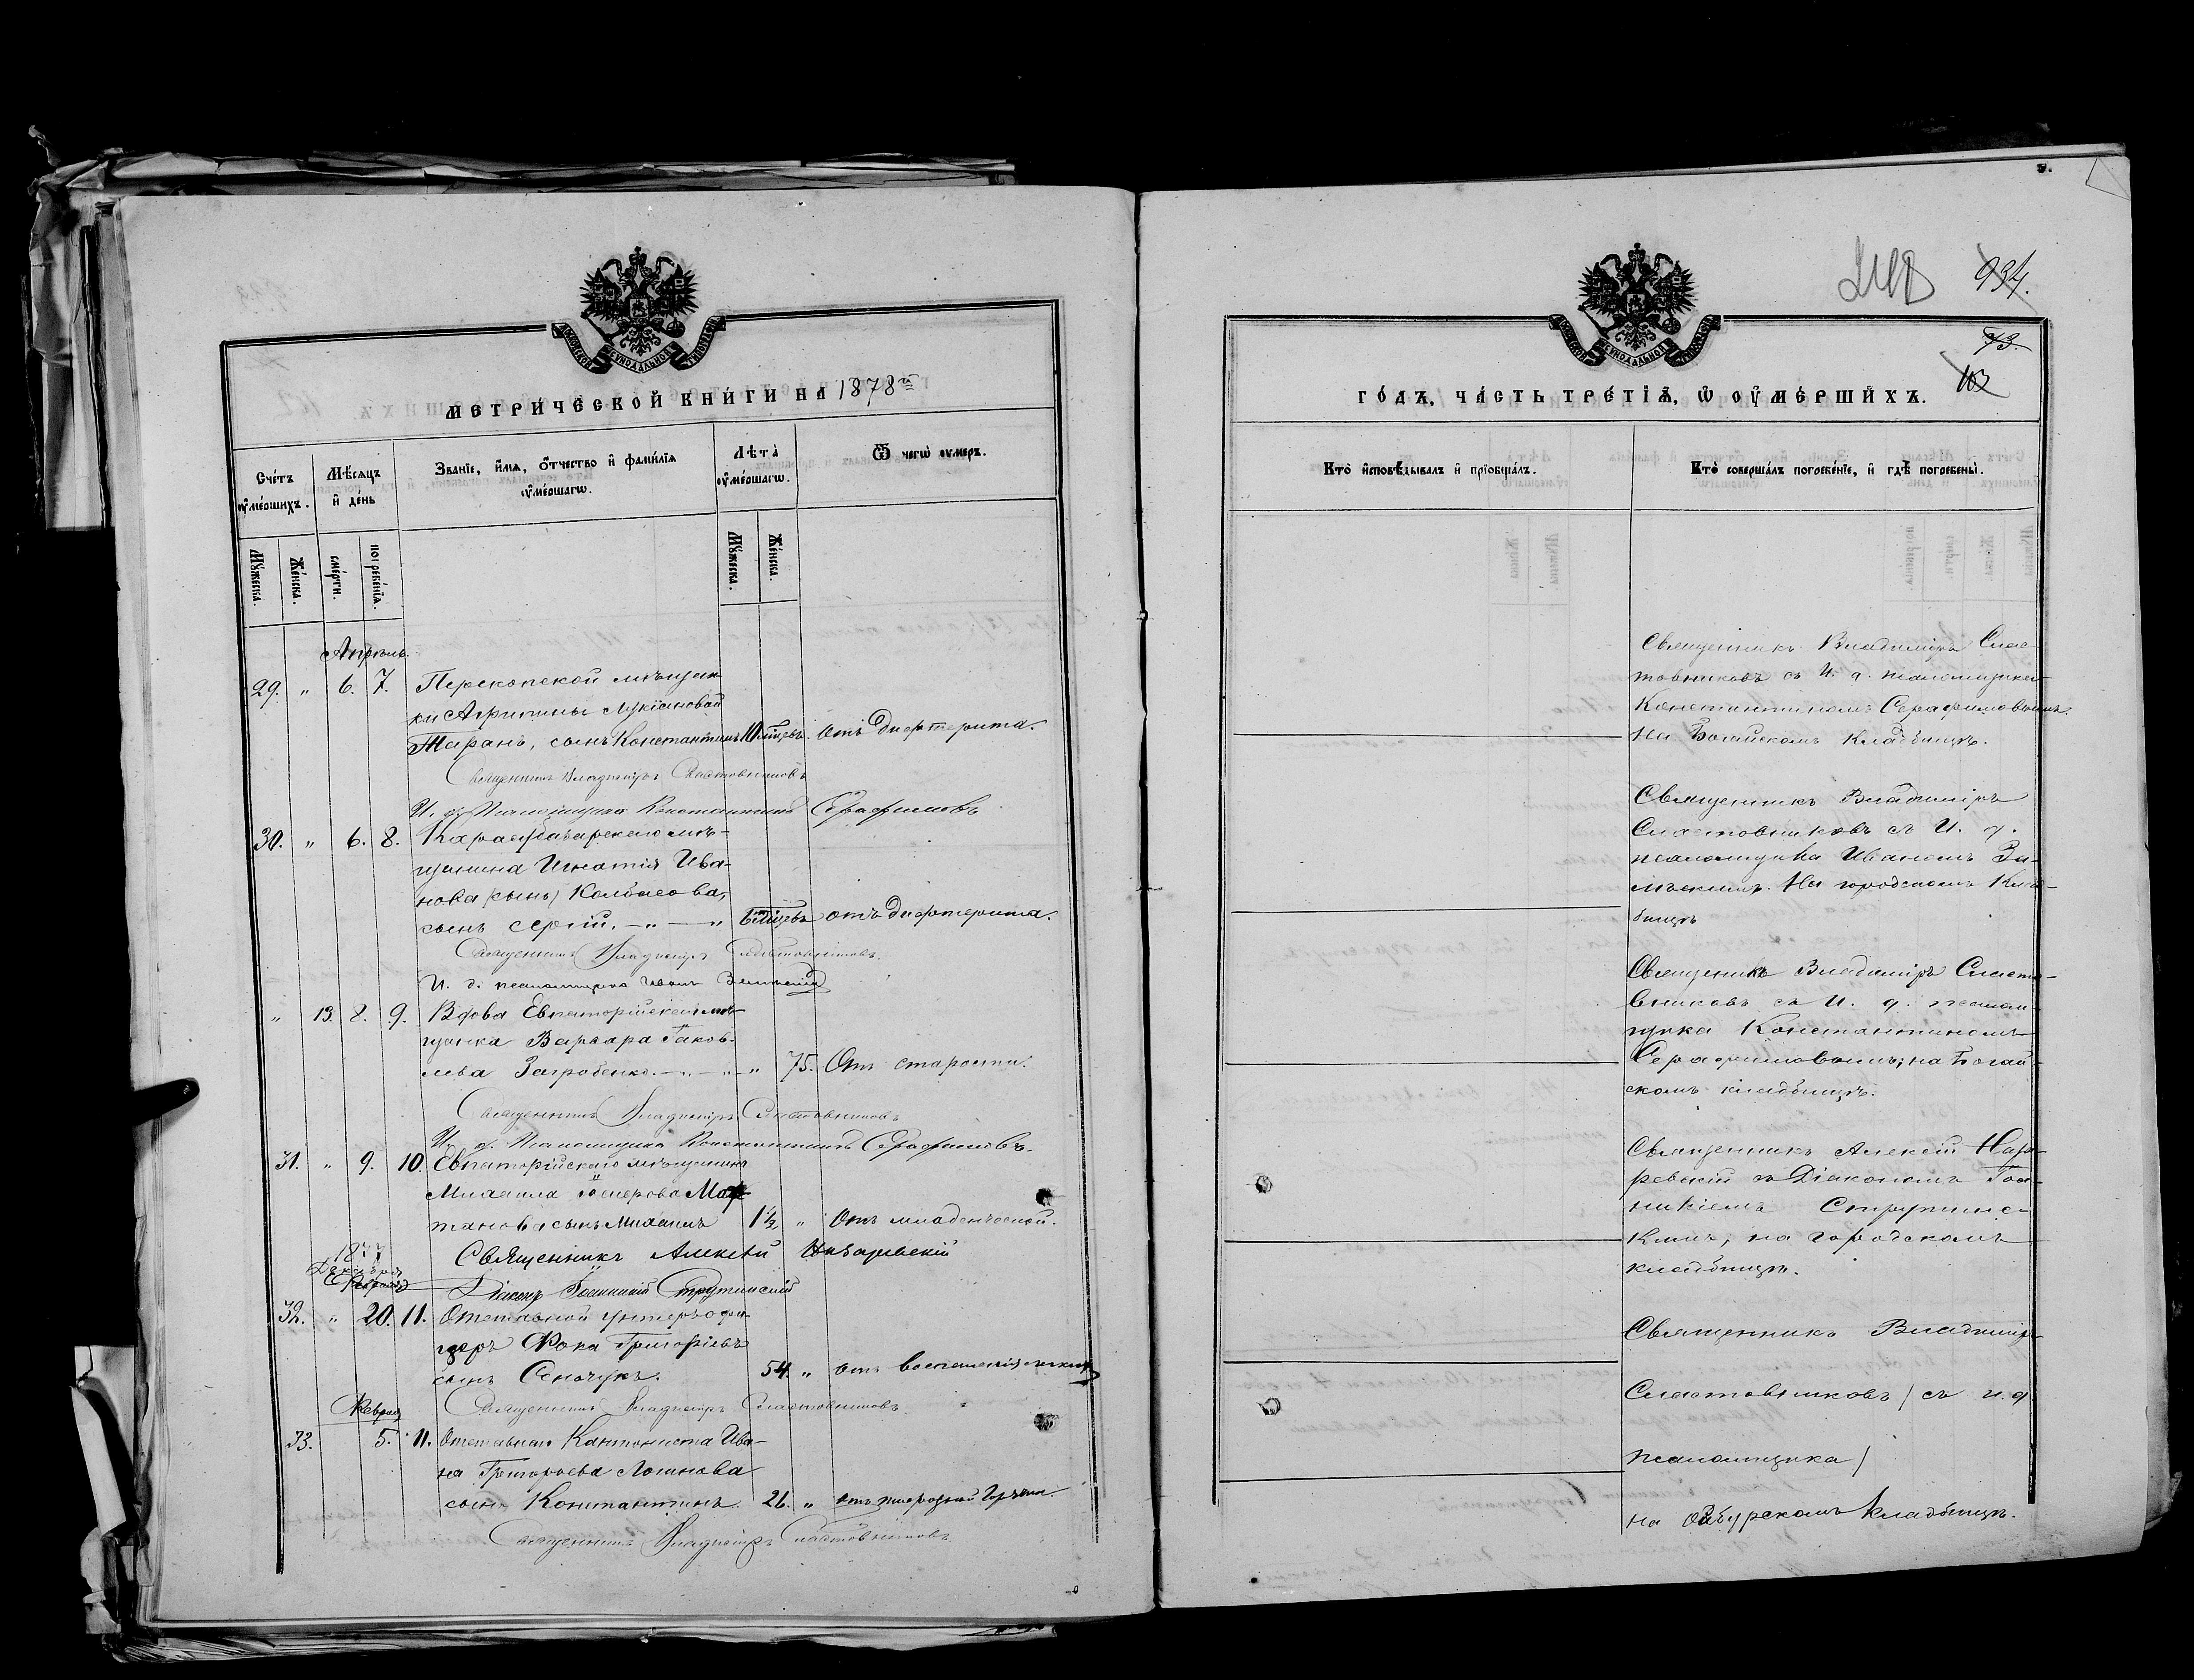 Метрической книги на 1878 го
Счетъ умершихъ.
Мѣсяцъ и день
Званіе, имя, отчество и фамилія умершагѡ.
Лѣта умершагѡ.
Ѿ чегѡ умеръ.
Мужеска.
Женска.
смерти.
погребенія.
Мужеска.
Женска.
Апрѣль.
29. " 6. 7. Перекопской мѣщан-
ки Агрипины Лукіановой
Таранъ, сынъ Константинъ 10 мѣсяц. отъ дифтерита.
Священникъ Владиміръ Сластовниковъ
И. д. Псаломщика Константинъ Серафимовъ
30. " 6. 8. Карасубазарскаго мѣ-
щанина Игнатія Ива-
нова (сынъ) Колбасова,
сынъ Сергій. отъ дифтерита.
Священникъ Владиміръ Сластовниковъ.
И. д. псаломщика Иванъ
" 13. 8. 9. Вдова Евпаторійская мѣ-
щанка Варвара Іаков-
лева Загробенко. " 75. Отъ старости.
Священникъ Владиміръ Сластовниковъ
И. д. Псаломщика Константинъ Серафимовъ.
31. " 9. 10. Евпаторійскаго мѣщанина
Михаила
сынъ Михаилъ 1½ " Отъ младенческой.
1877 Священникъ Алексѣй Назаревскій
Декабрь
Діаконъ Іоанникій Струтинскій
32. " 20. 11. Отставной унтеръ-офи-
церъ Фока Григорьевъ
сынъ Сеночукъ. 54. " отъ воспаленія легкихъ
Февраль Священникъ Владиміръ Сластовниковъ.
33. 5. 11. Отставнаго Кантониста Ива-
на Григорьева Логинова
сынъ Константинъ. 26. " отъ
Священникъ Владиміръ Сластовниковъ
934.
103
годъ, часть третіѧ, ѡ умершихъ.
Кто исповѣдывалъ и пріобщалъ.
Кто совершалъ погребеніе, и гдѣ погребены.
Священникъ Владиміръ Слас-
товниковъ съ И. д. псаломщика
Константиномъ Серафимовымъ.
На Богайскомъ кладбищѣ.
Священникъ Владиміръ
Сластовниковъ съ И. д.
псаломщика Иваномъ
На городскомъ клад-
бищѣ
Священникъ Владиміръ Сласто-
вниковъ съ И. д. псалом-
щика Константиномъ
Серафимовымъ; на Богай-
скомъ кладбищѣ.
Священникъ Алексій Наза-
ревскій съ Діакономъ Іоан-
никіемъ Струтинс-
кимъ, на городскомъ
кладбищѣ.
Священникъ Владиміръ
Сластовниковъ / съ и. д
псаломщика /
на Ойбурскомъ кладбищѣ.